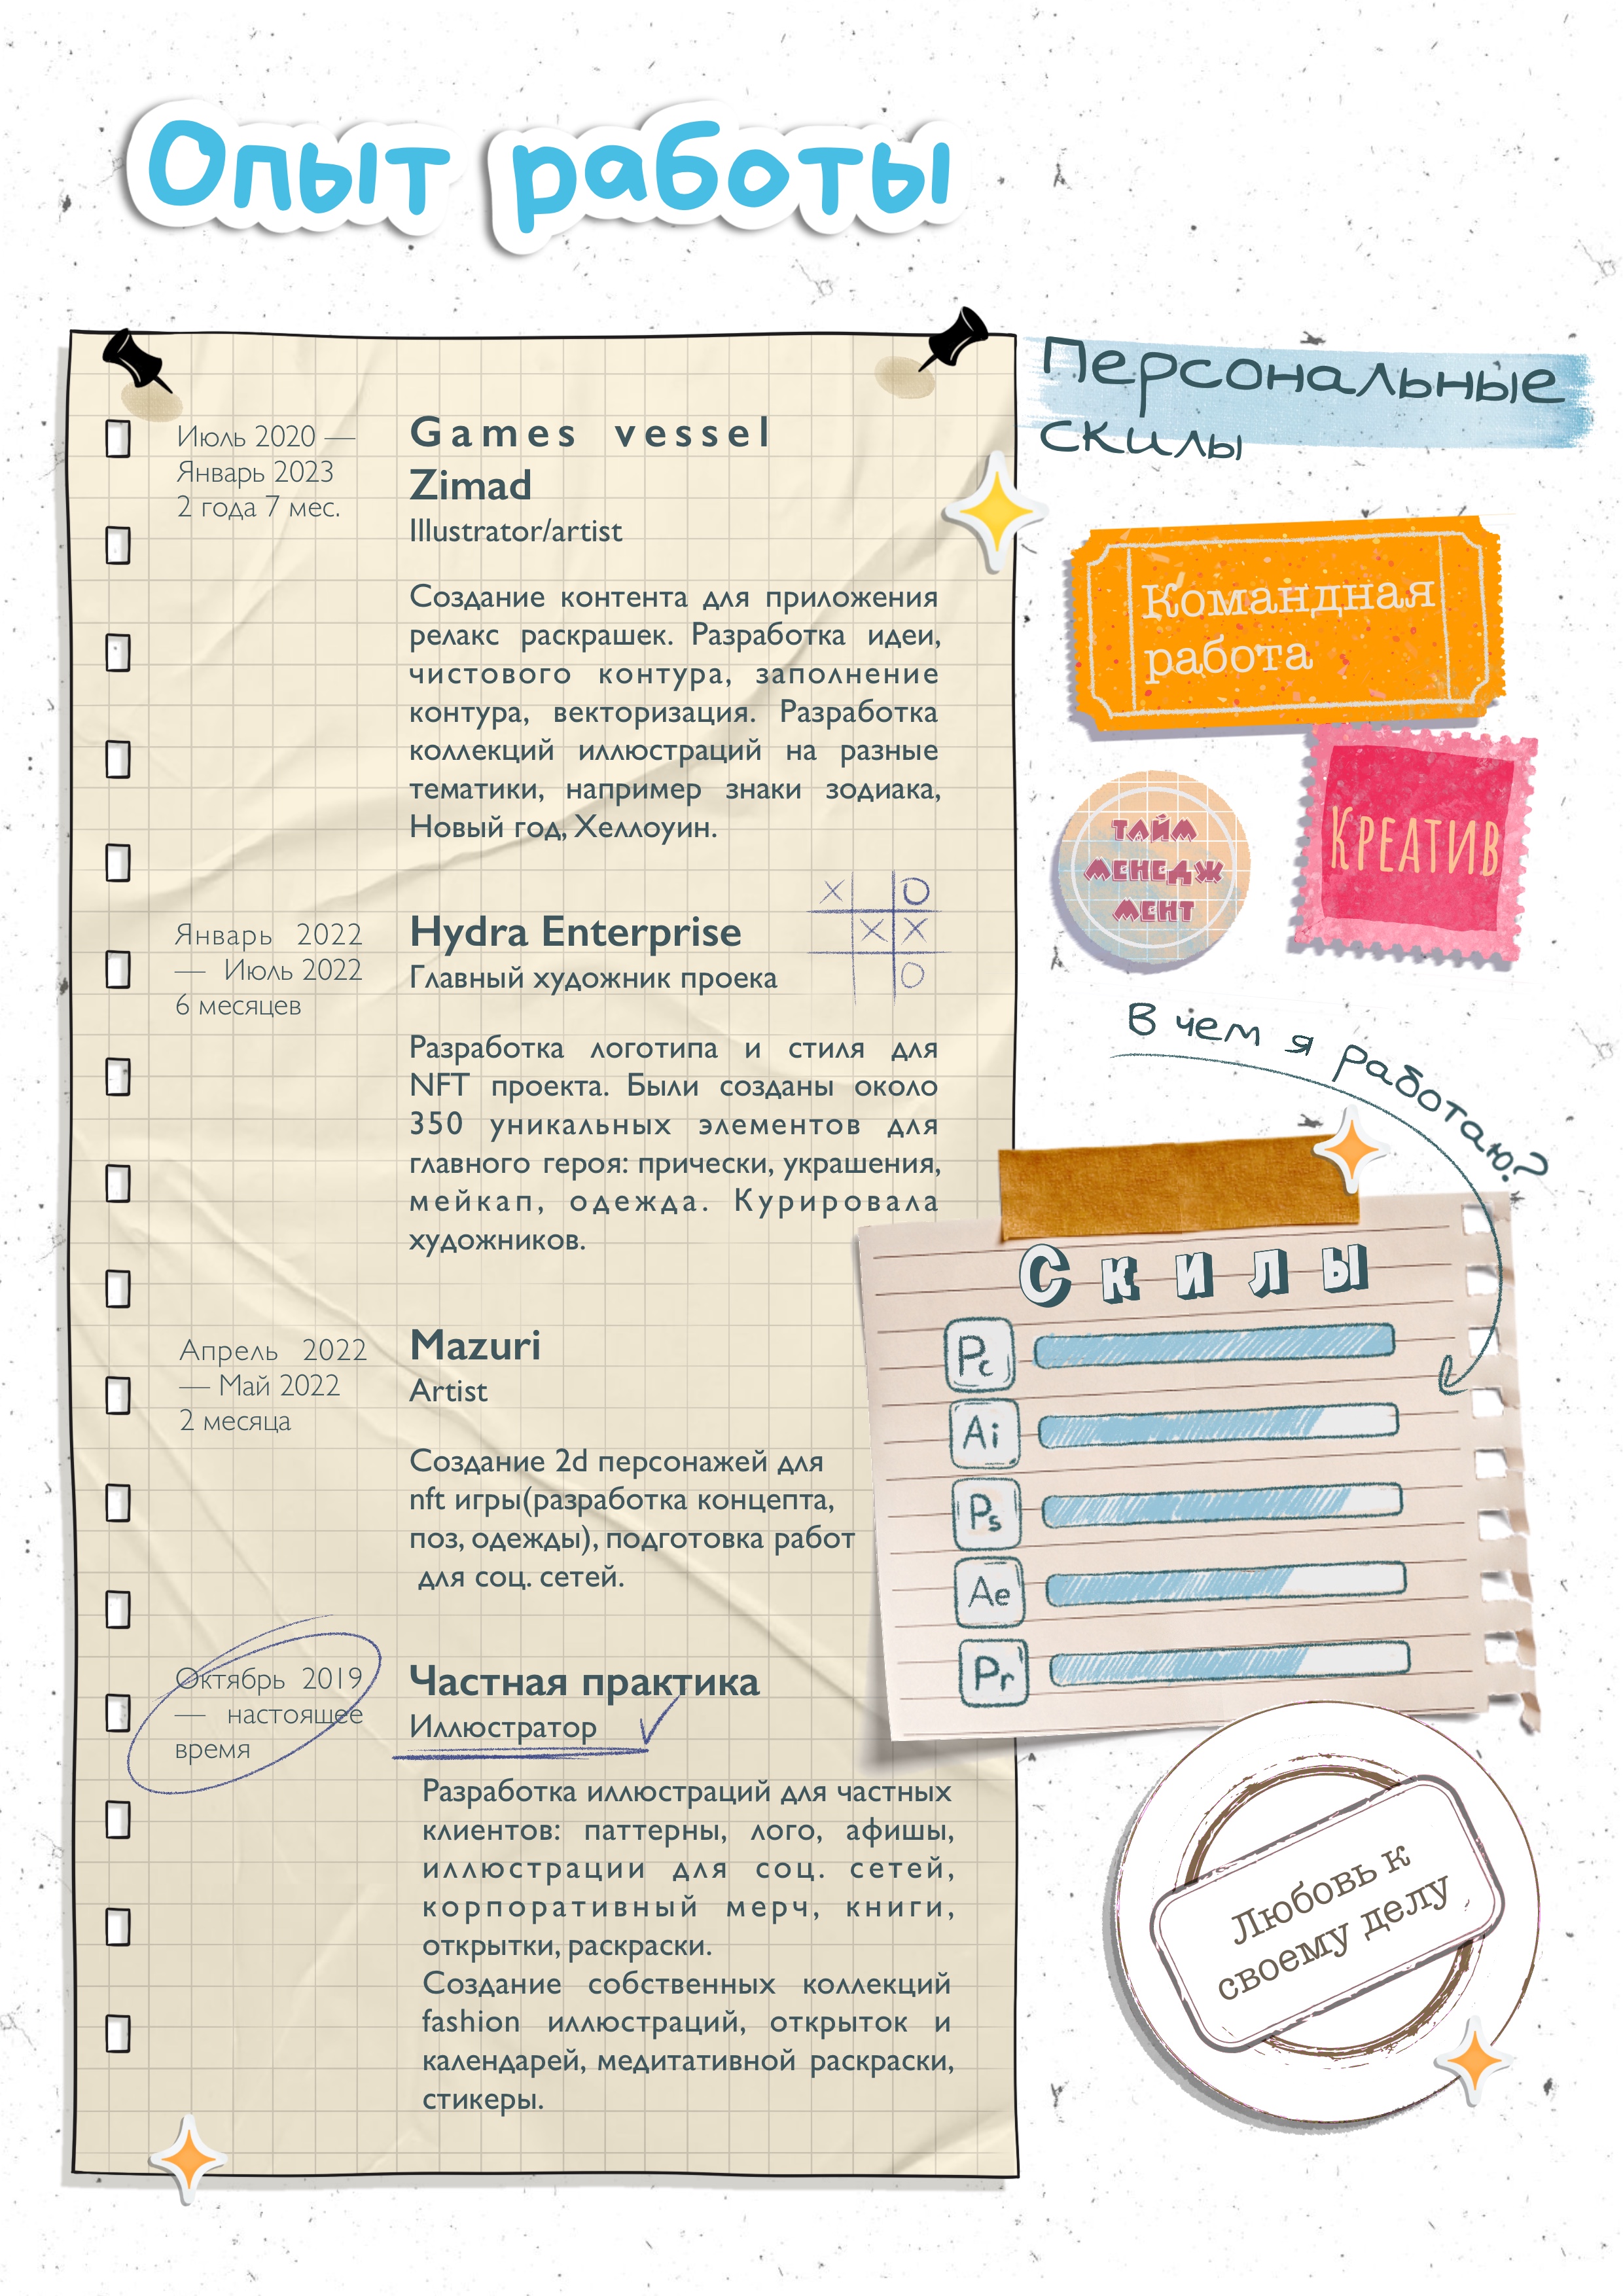 Опыт работы
Июль 2020 —
Январь 2023
2 года 7 мес.
Games vessel
Zimad
Illustrator/artist
Создание контента для приложения
релакс раскрашек. Разработка идеи,
чистового контура, заполнение
контура, векторизация. Разработка
коллекций иллюстраций на разные
тематики, например знаки зодиака,
Новый год, Хеллоуин.
Январь 2022
— Июль 2022
6 месяцев
Hydra Enterprise
Главный художник проека
Разработка логотипа и стиля для
NFT проекта. Были созданы около
350 уникальных элементов для
главного героя: прически, украшения,
мейкап, одежда. Курировала
художников.
Апрель 2022
— Май 2022
2 месяца
Mazuri
Artist
Создание 2d персонажей для
nft игры(разработка концепта,
поз, одежды), подготовка работ
для соц. сетей.
Октябрь 2019
— настоящее
время
Частная практика
Иллюстратор
Разработка иллюстраций для частных
клиентов: паттерны, лого, афишы,
иллюстрации для соц. сетей,
корпоративный мерч, книги,
открытки, раскраски.
Создание собственных коллекций
fashion иллюстраций, открыток и
календарей, медитативной раскраски,
стикеры.
Персональные
скилы
Командная
работа
ТАЙМ
МЕНЕДЖ
МЕНТ
Креатив
В чем я работаю?
Скилы
Pc
Ai
Ps
Ae
Pr
Любовь к
своему делу
X O
X X
O